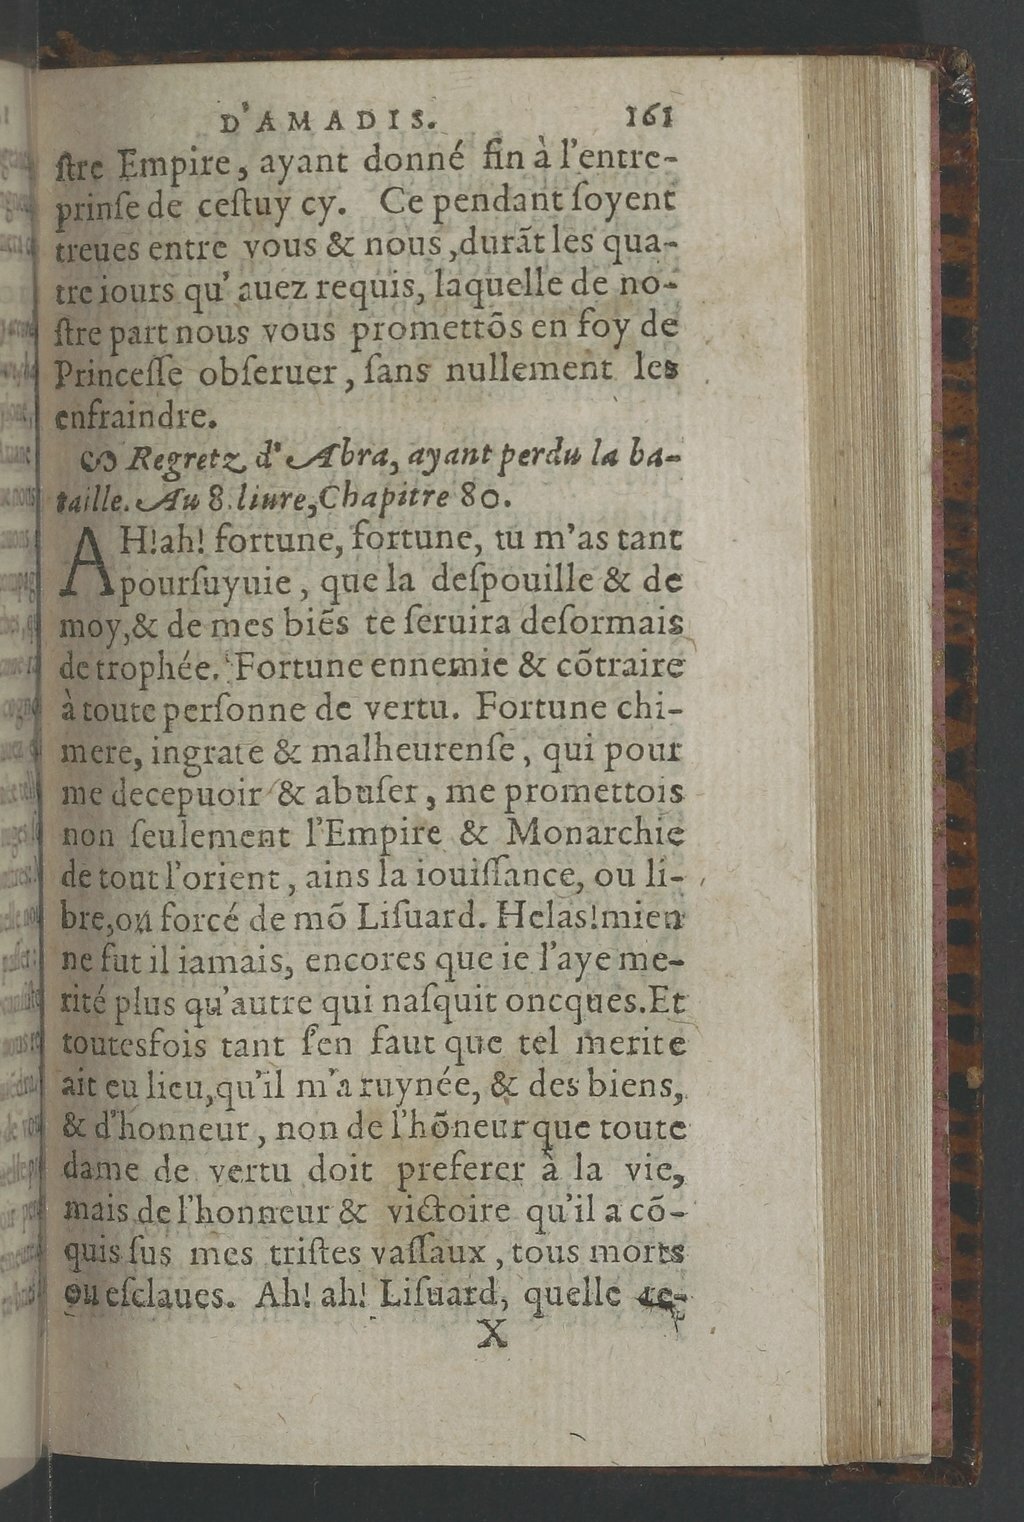 D'AMADIS. 161
ſtre Empire, ayant donné fin à l'entre-
prinſe de ceſtuy cy. Ce pendant ſoyent
treues entre vous & nous ,durāt les qua-
tre iours qu' auez requis, laquelle de no-
ſtre part nous vous promettõs en foy de
Princeſſe obſeruer, ſans nullement les
enfraindre.
Regretz d' Abra, ayant perdu la ba-
taille. Au 8. liure, Chapitre 80.
AH!ah! fortune, fortune, tu m'as tant
pourſuyuie, que la deſpouille & de
moy,& de mes biẽs te ſeruira deſormais
de trophée. Fortune ennemie & cõtraire
à toute perſonne de vertu. Fortune chi-
mere, ingrate & malheurenſe, qui pour
me decepuoir & abuſer, me promettois
non ſeulement l'Empire & Monarchie
de tout l'orient, ains la iouiſſance, ou li-
bre,ou forcé de mõ Liſuard. Helas!mien
ne fut il iamais, encores que ie l'aye me-
rité plus qu'autre qui naſquit oncques.Et
toutesfois tant ſ'en faut que tel merite
ait eu lieu,qu'il m'a ruynée, & des biens,
& d'honneur, non de l'hõneur que toute
dame de vertu doit preferer à la vie,
mais de l'honneur & victoire qu'il a cõ-
quis ſus mes triſtes vaſſaux, tous morts
ou eſclaues. Ah! ah! Liſuard, quelle re-
X